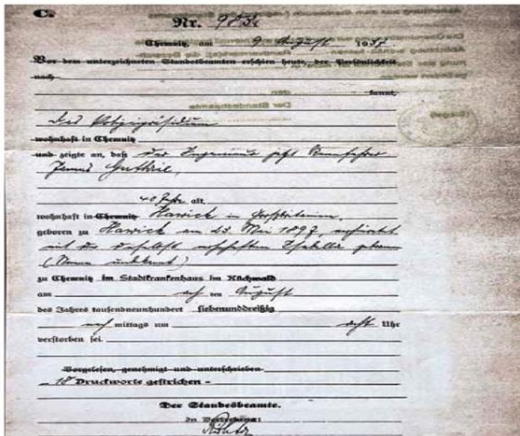 C.
Nr. 983
Chemnitz, am 9. August 1937
Vor dem unterzeichneten Standesbeamten erschien heute, der Persönlichkeit
nach
kannt,
Das Polizeipräsidium
wohnhaft in Chemnitz
und zeigte an, daß der Ingenieur jetzt Rennfahrer
James Guthrie,
40 Jahre alt,
wohnhaft in Chemnitz Hawick in Großbritannien,
geboren zu Hawick am 23. Mai 1897, verheiratet
mit der daselbst wohnhaften Isabella geborene
(Name unbekannt)
zu Chemnitz im Stadtkrankenhaus im Küchwald
am acht ten August
des Jahres tausendneunhundert siebenunddreißig
nach mittags um acht Uhr
verstorben sei.
Vorgelesen, genehmigt und unterschrieben
18 Druckworte gestrichen -
Der Standesbeamte.
In Vertretung: